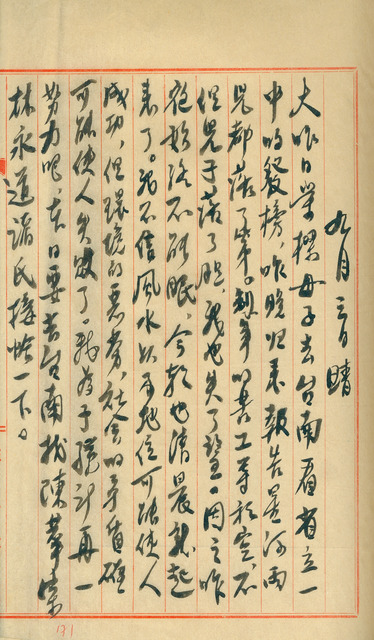 九月三日 晴
大昨日榮樑母子去台南看省立一
中的發榜,昨晚归来報告星河兩
兒都落了第。数年的苦工等於空。不
但兒子落了胆,我也失了望。因之昨
夜終於不能眠,今朝也清晨就起
来了。我不信風水以至地位可能使人
成功,但環境的惡劣,社会的矛盾確
可能使人失敗了。我為子孫計再一
努力吧,本日要去台南找陳華宗
林永道諸氏接洽一下。